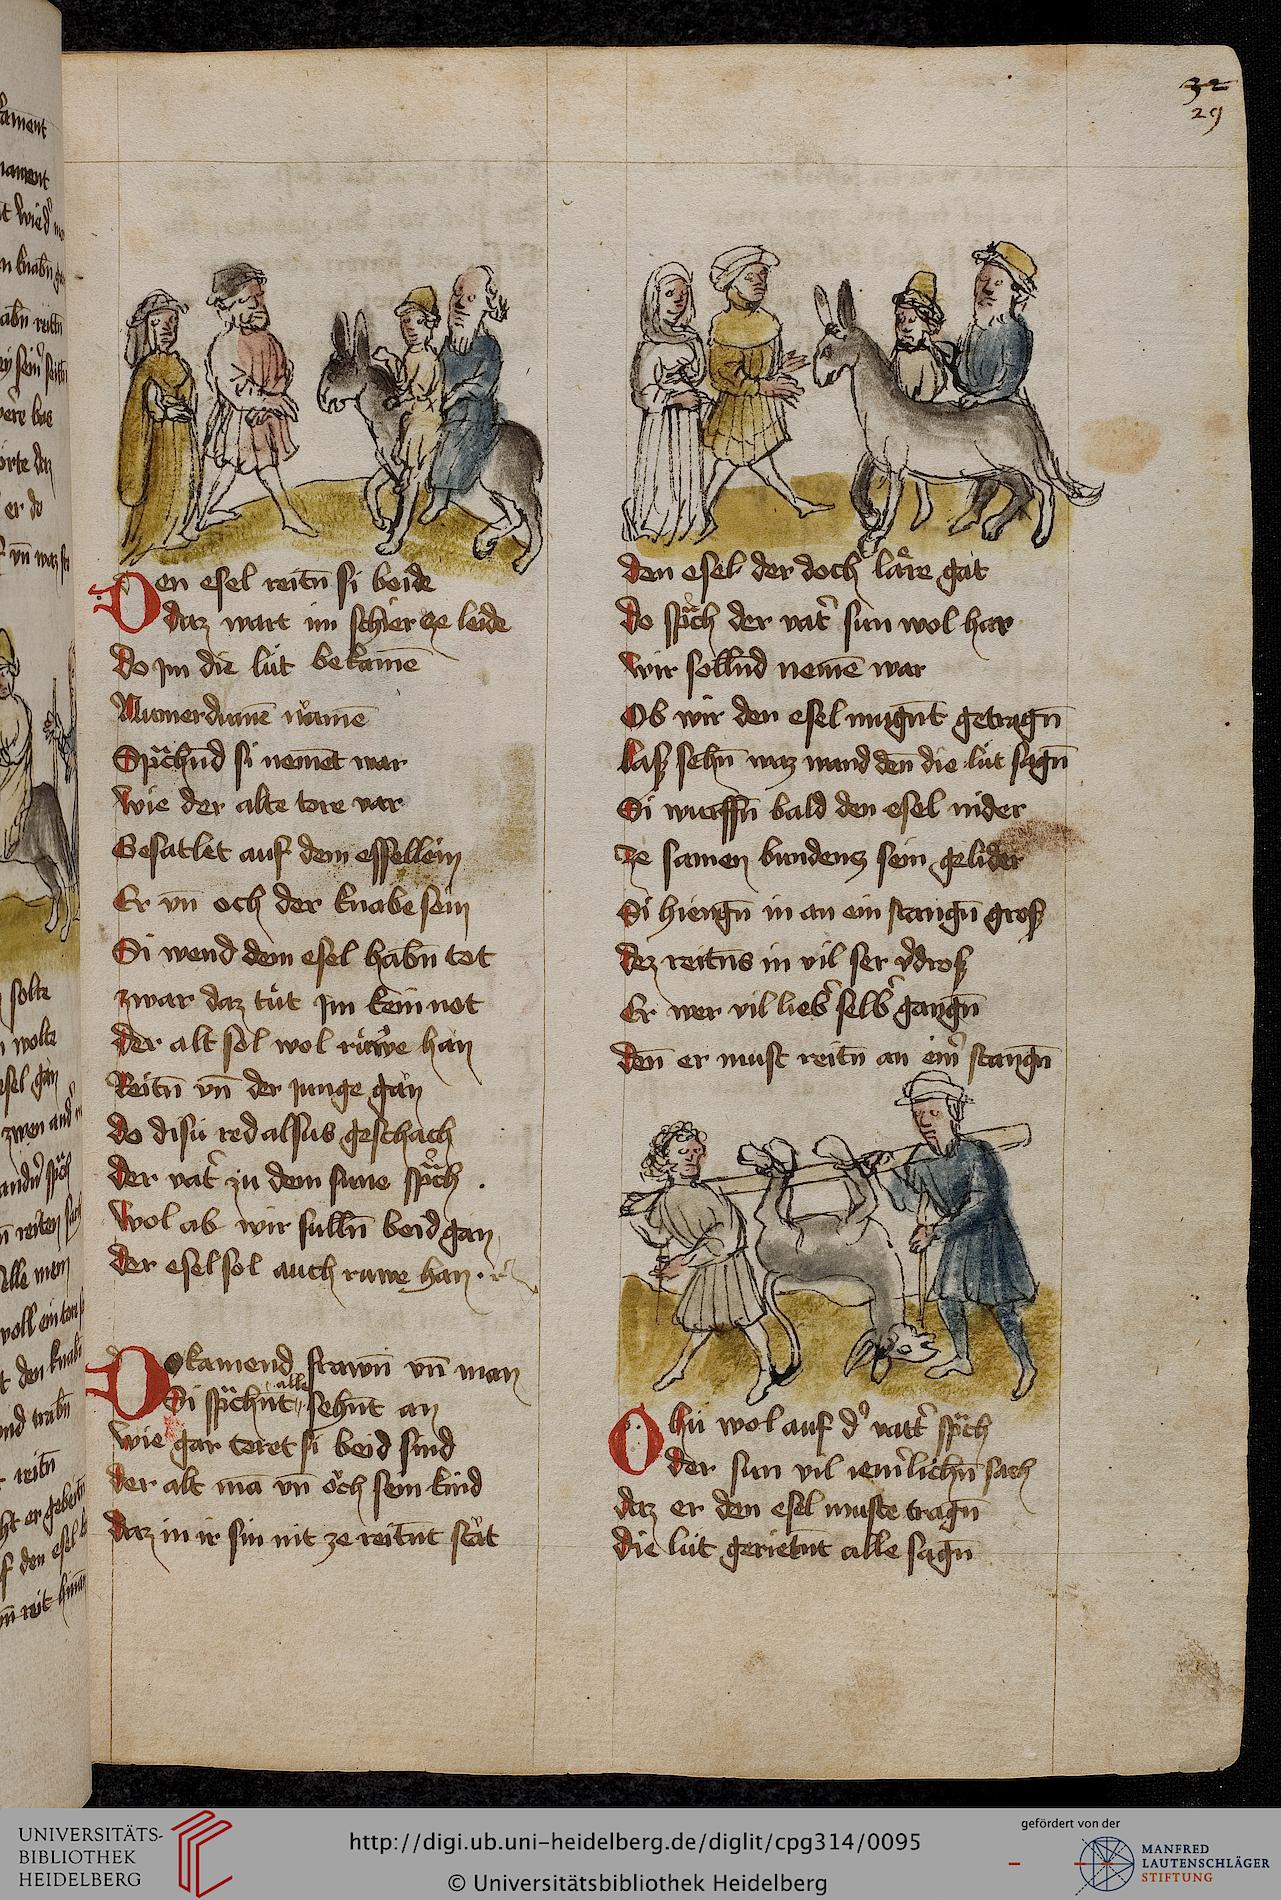 32
29
Den esel reitn̄ si beide
daz wart im schier ze leide
do jm die lüt bekamē
Spͣchn̄d si nemēt war
wie der alte tore var
Gesatlet auf dem essellein
Er vn̄ och der knabe sein
Si wend dem esel habn̄ tot
zwar daz tůt jm kein not
der alt sol wol růwe han
Reitn̄ vn̄ der junge gan
do disü red alsus geschach
der vatʼ zu dem sune spͣch
wol ab wir sulln̄ beid gan
der esel sol auch ruwe han
Do kamend frawn̄ vn̄ man
Si spͣchnt alle sehn̄t an
wie gar toret si beid sind
der alt mā vn̄ och sein kind
daz in ir sin nit ze reitn̄t stat
den esel der doch läre gat
do spͣch der vatʼ sun wol har
wir solln̄d nemē war
Ob wir den esel mugn̄t getragn̄
laß sehn̄ waz wand den die lüt sagn̄
Si wurffn̄ bald den esel nider
ze samen bundens sein gelider
Si hiengn̄ in an ein stangn̄ groß
dez reitn̄s in vil ser vʼdroß
Er wer vil liebʼ selbʼ gangn̄
den̄ er must reitn̄ an eimʼ stangn̄
Ohü wol auf dʼ vattʼ spͣch
der sun vil iemʼlichn̄ sach
daz er den esel muste tragn̄
die lüt gerietn̄t alle sagn̄
UNIVERSITÄTS-
BIBLIOTHEK
HEIDELBERG
http://digi.ub.uni-heidelberg.de/diglit/cpg314/0095
© Universitätsbibliothek Heidelberg
gefördert von der
MANFRED
LAUTENSCHLÄGER
STIFTUNG